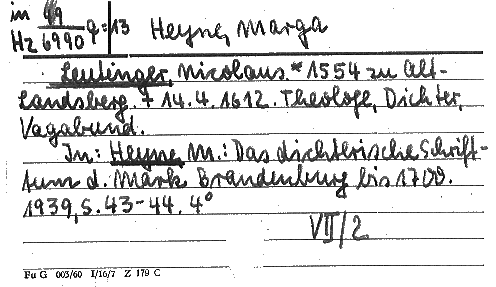 in 49
Hz 6990 q=13 Heyne, Marga
Leutinger, Nicolaus. *1554 zu Alt-
Landsberg. + 14.4.1612. Theologe, Dichter,
Vagabund.
In: Heyne, M.: Das dichterische Schrift-
tum d. Mark Brandenburg bis 1700.
1939, S. 43-44. 4°
VII/2
Fu G 003/60 I/16/7 Z 179 C